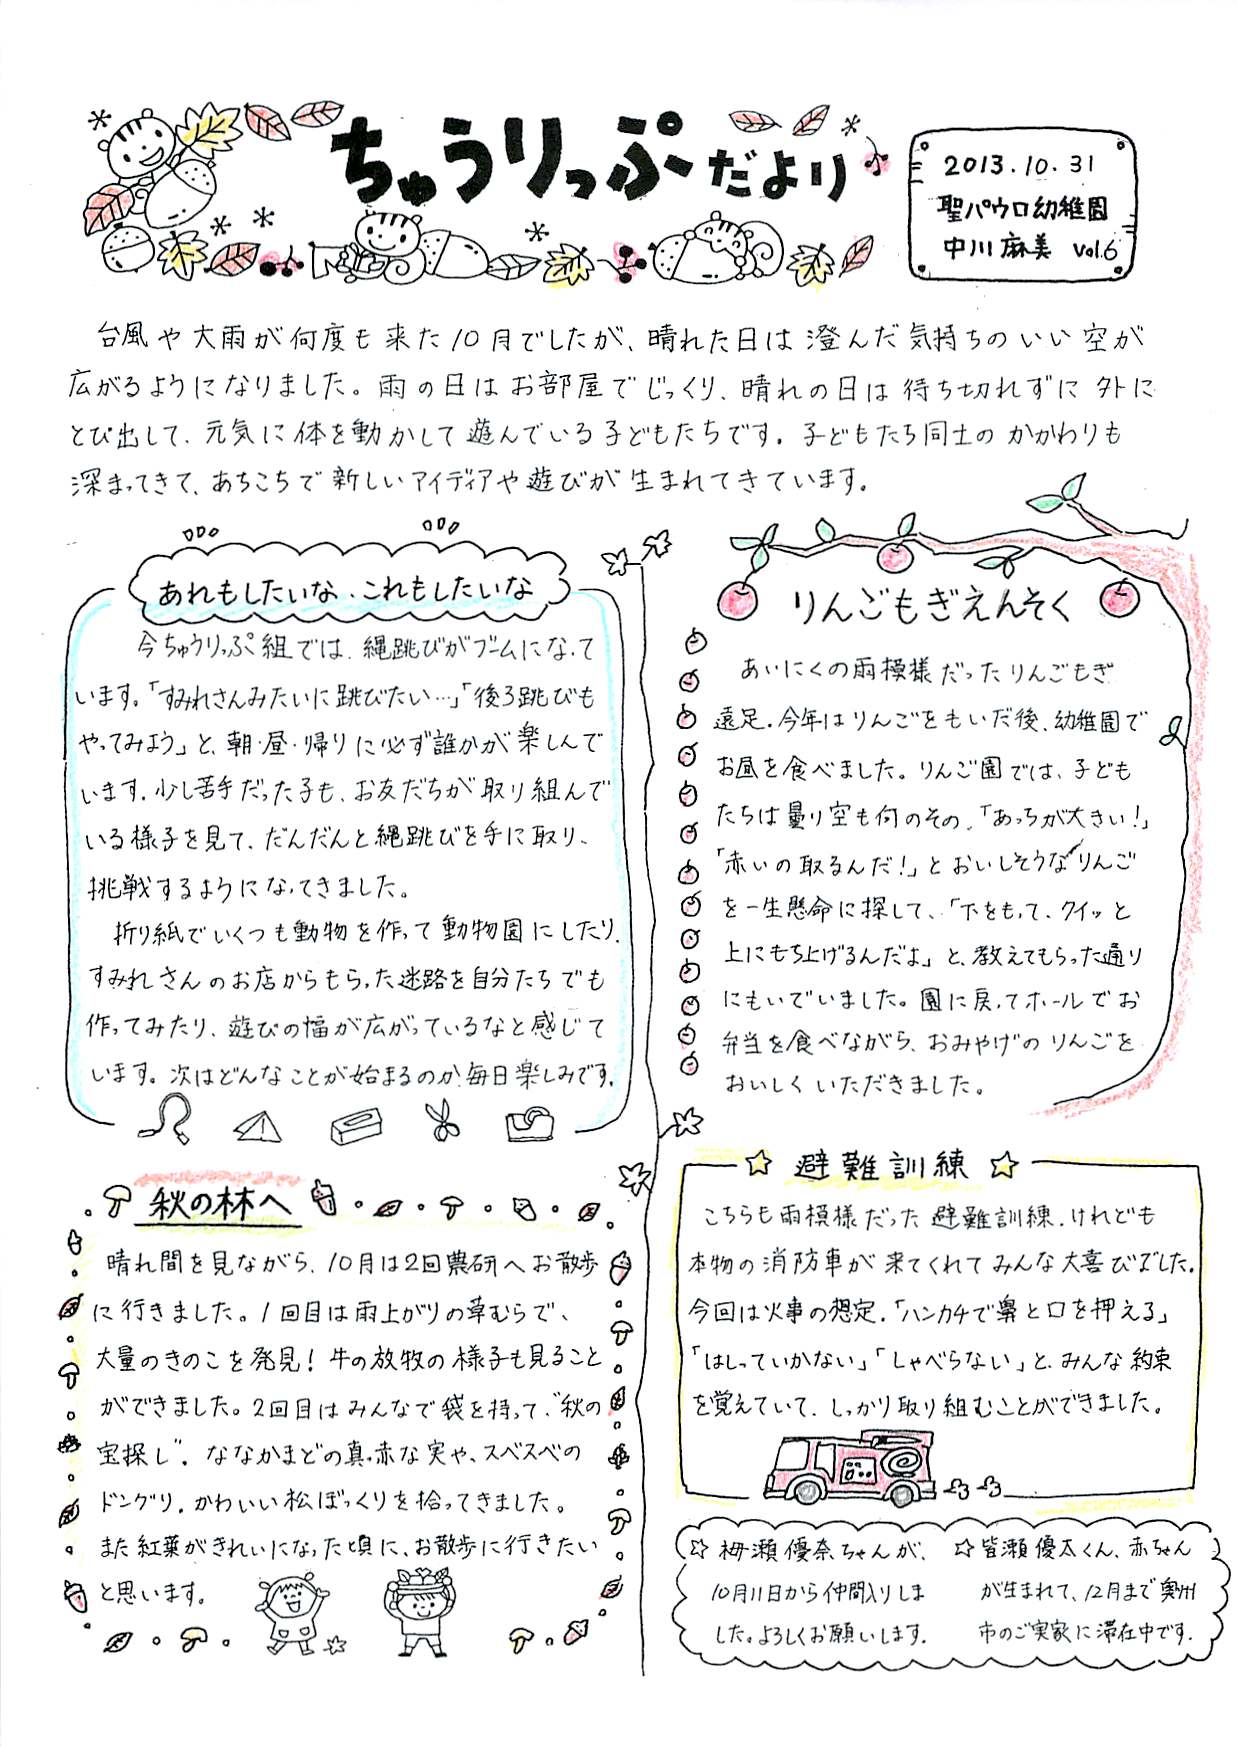 ちゅうりっぷだより
2013.10.31
聖パウロ幼稚園
中川麻美 vol.6
台風や大雨が何度も来た10月でしたが、晴れた日は澄んだ気持ちのいい空が
広がるようになりました。雨の日はお部屋でじっくり、晴れの日は待ち切れずに外に
とび出して、元気に体を動かして遊んでいる子どもたちです。子どもたち同士のかかわりも
深まってきて、あちこちで新しいアイディアや遊びが生まれてきています。
あれもしたいな、これもしたいな
今ちゅうりっぷ組では、縄跳びがブームになって
います。「すみれさんみたいに跳びたい…」「後ろ跳びも
やってみよう」と、朝・昼・帰りに必ず誰かが楽しんで
います。少し苦手だった子も、お友だちが取り組んで
いる様子を見て、だんだんと縄跳びを手に取り、
挑戦するようになってきました。
折り紙でいくつも動物を作って動物園にしたり、
すみれさんのお店からもらった迷路を自分たちでも
作ってみたり、遊びの幅が広がっているなと感じて
います。次はどんなことが始まるのか毎日楽しみです。
秋の林へ
晴れ間を見ながら、10月は2回農研へお散歩
に行きました。1回目は雨上がりの草むらで、
大量のきのこを発見！牛の放牧の様子も見ること
ができました。2回目はみんなで袋を持って、"秋の
宝探し"。ななかまどの真っ赤な実や、スベスベの
ドングリ、かわいい松ぼっくりを拾ってきました。
また紅葉がきれいになった頃に、お散歩に行きたい
と思います。
りんごもぎえんそく
あいにくの雨模様だったりんごもぎ
遠足。今年はりんごをもいだ後、幼稚園で
お昼を食べました。りんご園では、子ども
たちは曇り空も何のその、「あっちが大きい！」
「赤いの取るんだ！」とおいしそうなりんご
を一生懸命に探して、「下をもって、クイッと
上にもち上げるんだよ」と、教えてもらった通り
にもいでいました。園に戻ってホールでお
弁当を食べながら、おみやげのりんごを
おいしくいただきました。
避難訓練
こちらも雨模様だった避難訓練。けれども
本物の消防車が来てくれてみんな大喜びでした。
今回は火事の想定。「ハンカチで鼻と口を押える」
「はしっていかない」「しゃべらない」と、みんな約束
を覚えていて、しっかり取り組むことができました。
☆栂瀬優奈ちゃんが、
10月11日から仲間入りしま
した。よろしくお願いします。
☆皆瀬優太くん、赤ちゃん
が生まれて、12月まで奥州
市のご実家に滞在中です。